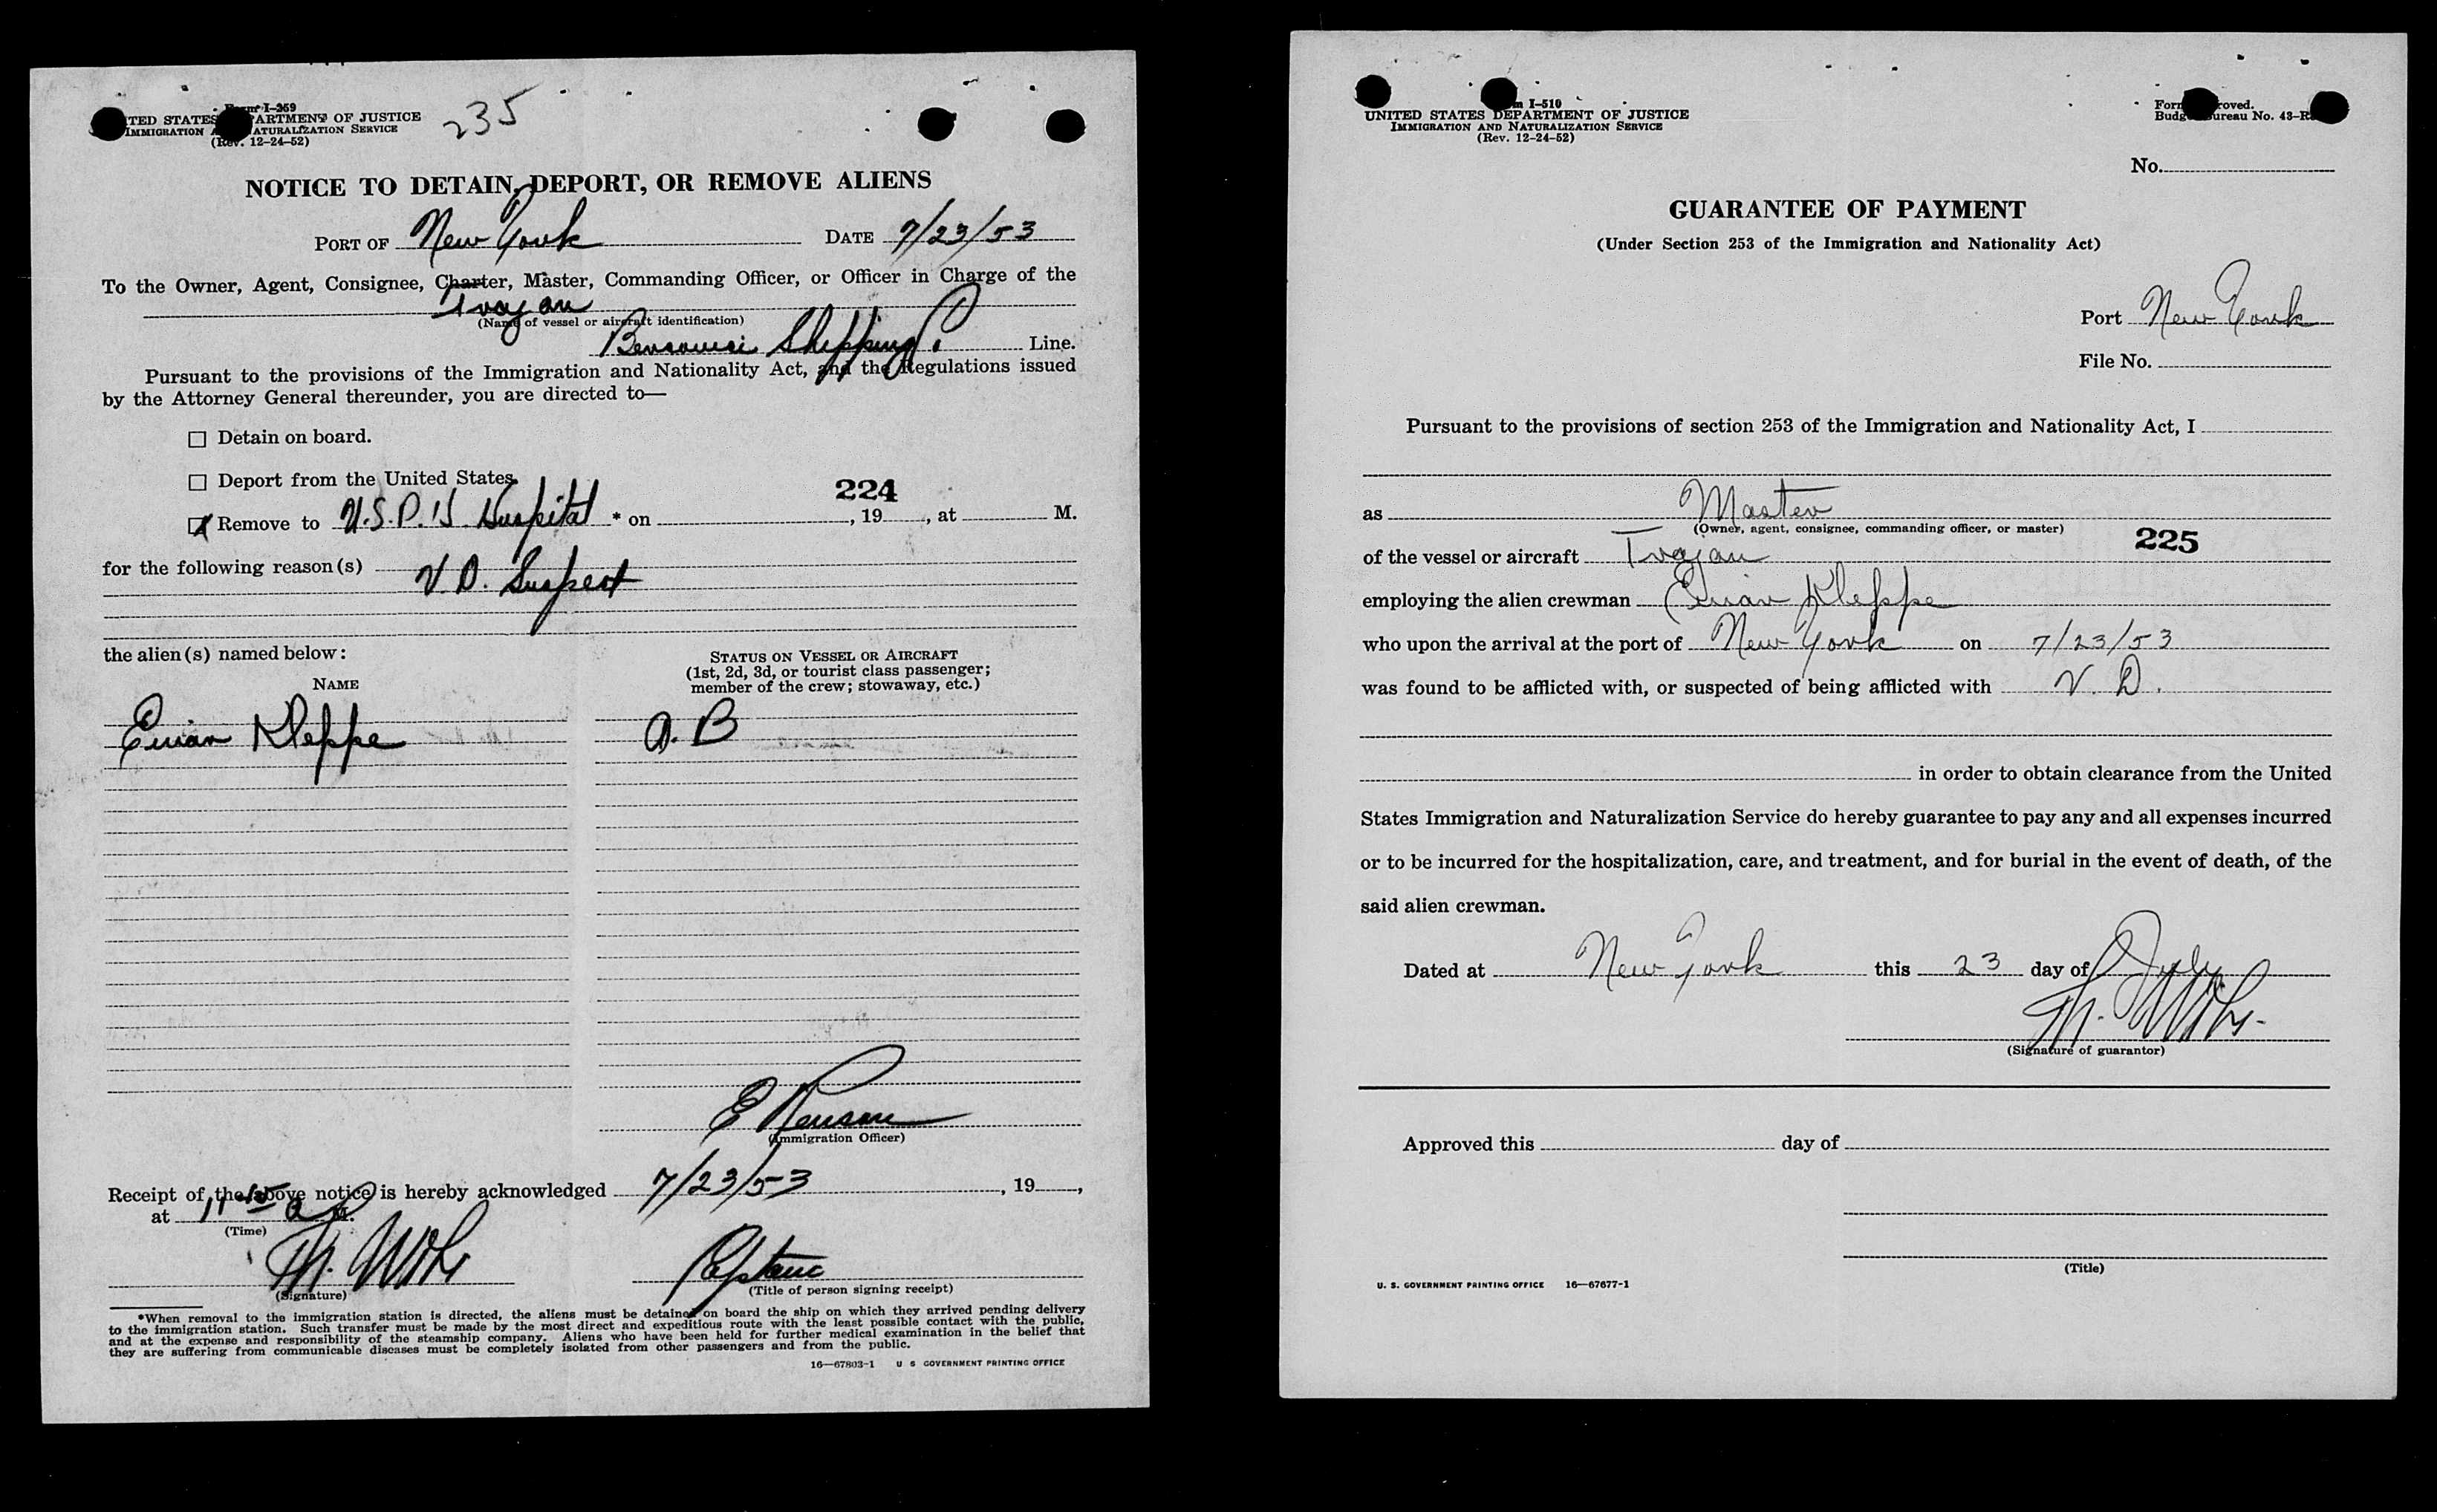 Form I-259
UNITED STATES DEPARTMENT OF JUSTICE
IMMIGRATION AND NATURALIZATION SERVICE
(Rev. 12-24-52)
235
NOTICE TO DETAIN, DEPORT, OR REMOVE ALIENS
PORT OF New York DATE 7/23/53
To the Owner, Agent, Consignee, Charter, Master, Commanding Officer, or Officer in Charge of the
Trojan
(Name of vessel or aircraft identification)
Shipping Line.
Pursuant to the provisions of the Immigration and Nationality Act, and the Regulations issued
by the Attorney General thereunder, you are directed to—
☐ Detain on board.
☐ Deport from the United States.
224
☒ Remove to U.S.P.H. Hospital * on , 19 , at M.
for the following reason(s)
V.D. Suspect
the alien(s) named below:
NAME
STATUS ON VESSEL OR AIRCRAFT
(1st, 2d, 3d, or tourist class passenger;
member of the crew; stowaway, etc.)
Kleppe
A.B
E
(Immigration Officer)
Receipt of the above notice is hereby acknowledged 7/23/53 , 19 ,
at 11 15 a M.
(Time)
(Signature)
Captain
(Title of person signing receipt)
*When removal to the immigration station is directed, the aliens must be detained on board the ship on which they arrived pending delivery
to the immigration station. Such transfer must be made by the most direct and expeditious route with the least possible contact with the public,
and at the expense and responsibility of the steamship company. Aliens who have been held for further medical examination in the belief that
they are suffering from communicable diseases must be completely isolated from other passengers and from the public.
16—67803-1 U S GOVERNMENT PRINTING OFFICE
Form I-510
UNITED STATES DEPARTMENT OF JUSTICE
IMMIGRATION AND NATURALIZATION SERVICE
(Rev. 12-24-52)
Form approved.
Budget Bureau No. 43-R
No.
GUARANTEE OF PAYMENT
(Under Section 253 of the Immigration and Nationality Act)
Port New York
File No.
Pursuant to the provisions of section 253 of the Immigration and Nationality Act, I
as Master
(Owner, agent, consignee, commanding officer, or master)
225
of the vessel or aircraft Trojan
employing the alien crewman Kleppe
who upon the arrival at the port of New York on 7/23/53
was found to be afflicted with, or suspected of being afflicted with V. D.
in order to obtain clearance from the United
States Immigration and Naturalization Service do hereby guarantee to pay any and all expenses incurred
or to be incurred for the hospitalization, care, and treatment, and for burial in the event of death, of the
said alien crewman.
Dated at New York this 23 day of July
(Signature of guarantor)
Approved this day of
(Title)
U. S. GOVERNMENT PRINTING OFFICE 16—67677-1